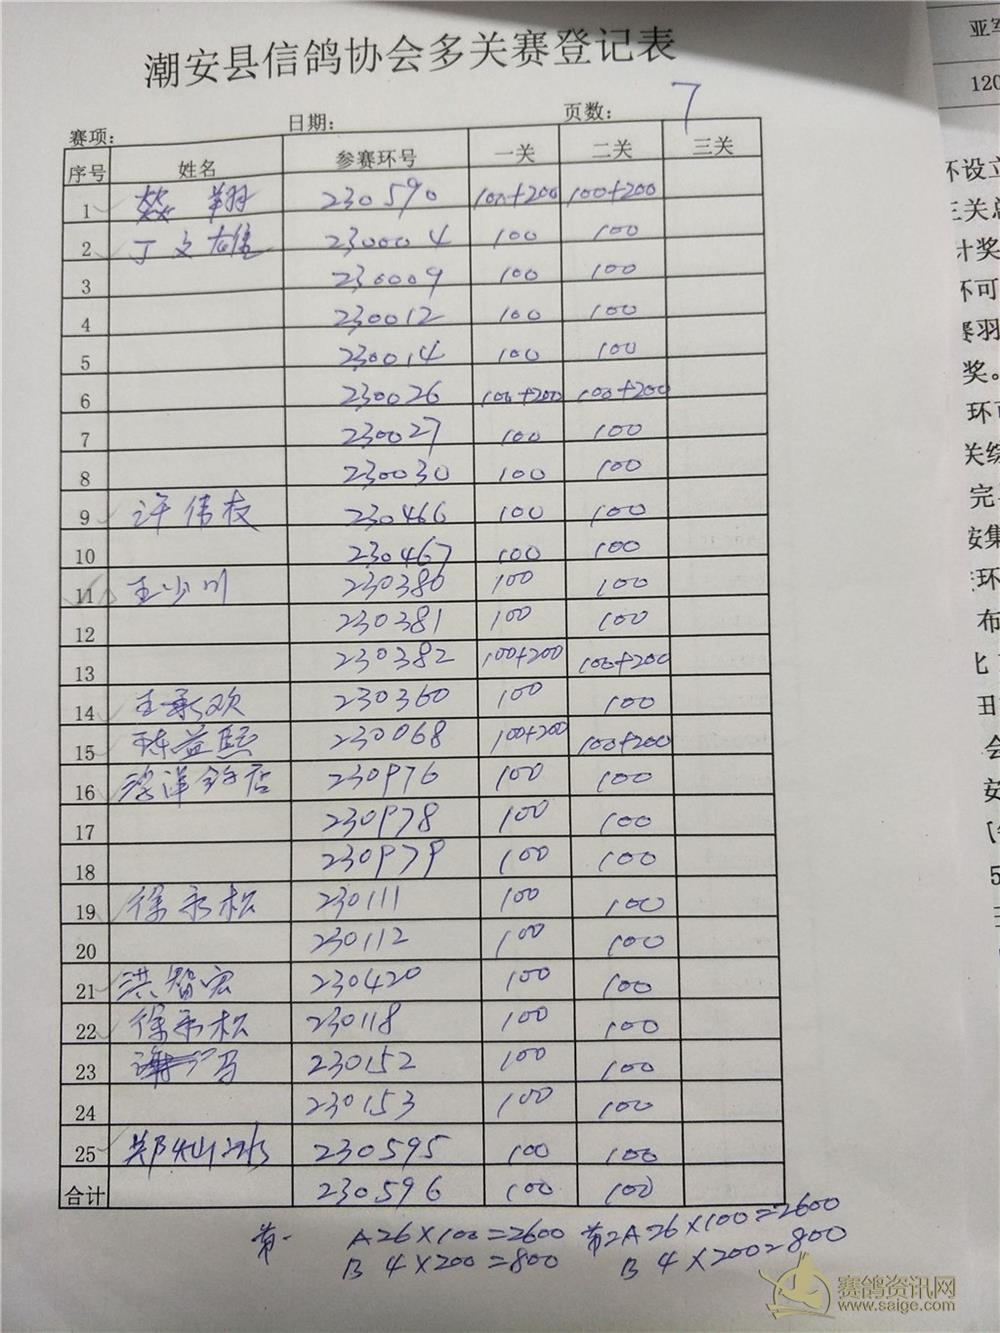 潮安县信鸽协会多关赛登记表
7
赛项: 日期: 页数:
序号 姓名 参赛环号 一关 二关 三关
1 燚翔 230590 100+200 100+200
2 丁文雄 230004 100 100
3 230009 100 100
4 230012 100 100
5 230014 100 100
6 230026 100+200 100+200
7 230027 100 100
8 230030 100 100
9 许伟友 230466 100 100
10 230467 100 100
11 王少川 230380 100 100
12 230381 100 100
13 230382 100+200 100+200
14 王承欢 230360 100 100
15 陈益熙 230068 100+200 100+200
16 海洋鸽店 230976 100 100
17 230978 100 100
18 230979 100 100
19 徐永松 230111 100 100
20 230112 100 100
21 洪智宏 230420 100 100
22 徐永松 230118 100 100
23 230152 100 100
24 230153 100 100
25 郑灿冰 230595 100 100
合计 230596 100 100
第一 A 26×100=2600 第2 A 26×100=2600
B 4×200=800 B 4×200=800
赛鸽资讯网
www.saige.com
亚军
120
环设立
三关总
计奖
环可
赛羽
奖。
环可
关综
完
按集
环
布
会
安
5